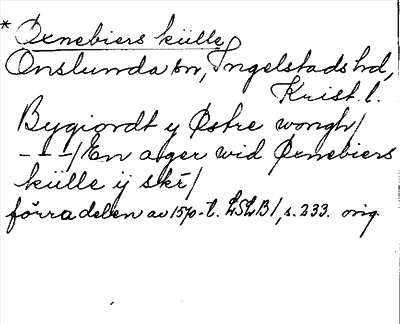 * Oxnebiers külle
Onslunda sn, Ingelstads hd,
Krist. l.
Bygiordt y Østre wongh/
- - -/ En ager wid Øxnebiers
külle ÿ skr̄/
förra delen av 1570-t. LSLB1, s. 233. orig.